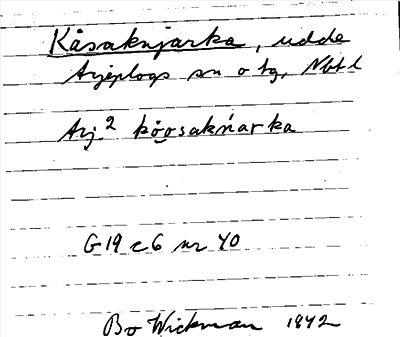 Kåsaknjarka, udde
Arjeplogs sn o tg, Nbtl
Arj.² kŏ̭osakńarka
G19 c6 nr 40
Bo Wickman 1942